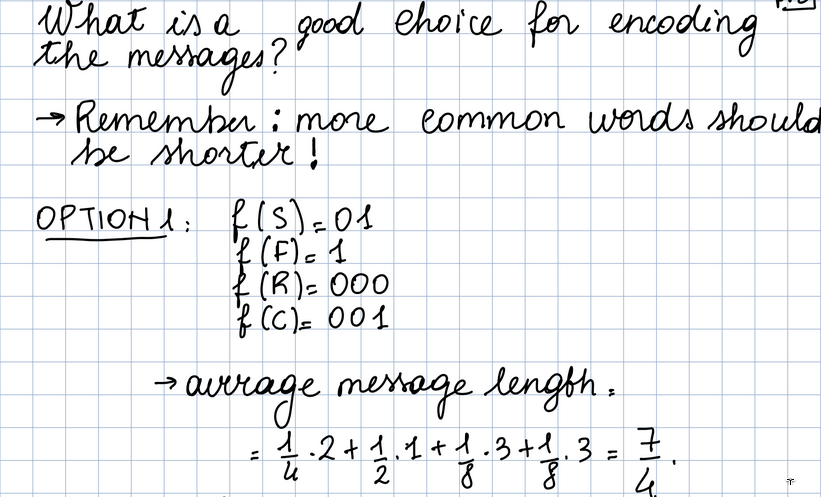 What is a good choice for encoding
the messages?
→ Remember: more common words should
be shorter!
OPTION 1: f(S)=01
f(F)=1
f(R)=000
f(C)=001
→ average message length:
= 1/4 · 2 + 1/2 · 1 + 1/8 · 3 + 1/8 · 3 = 7/4.